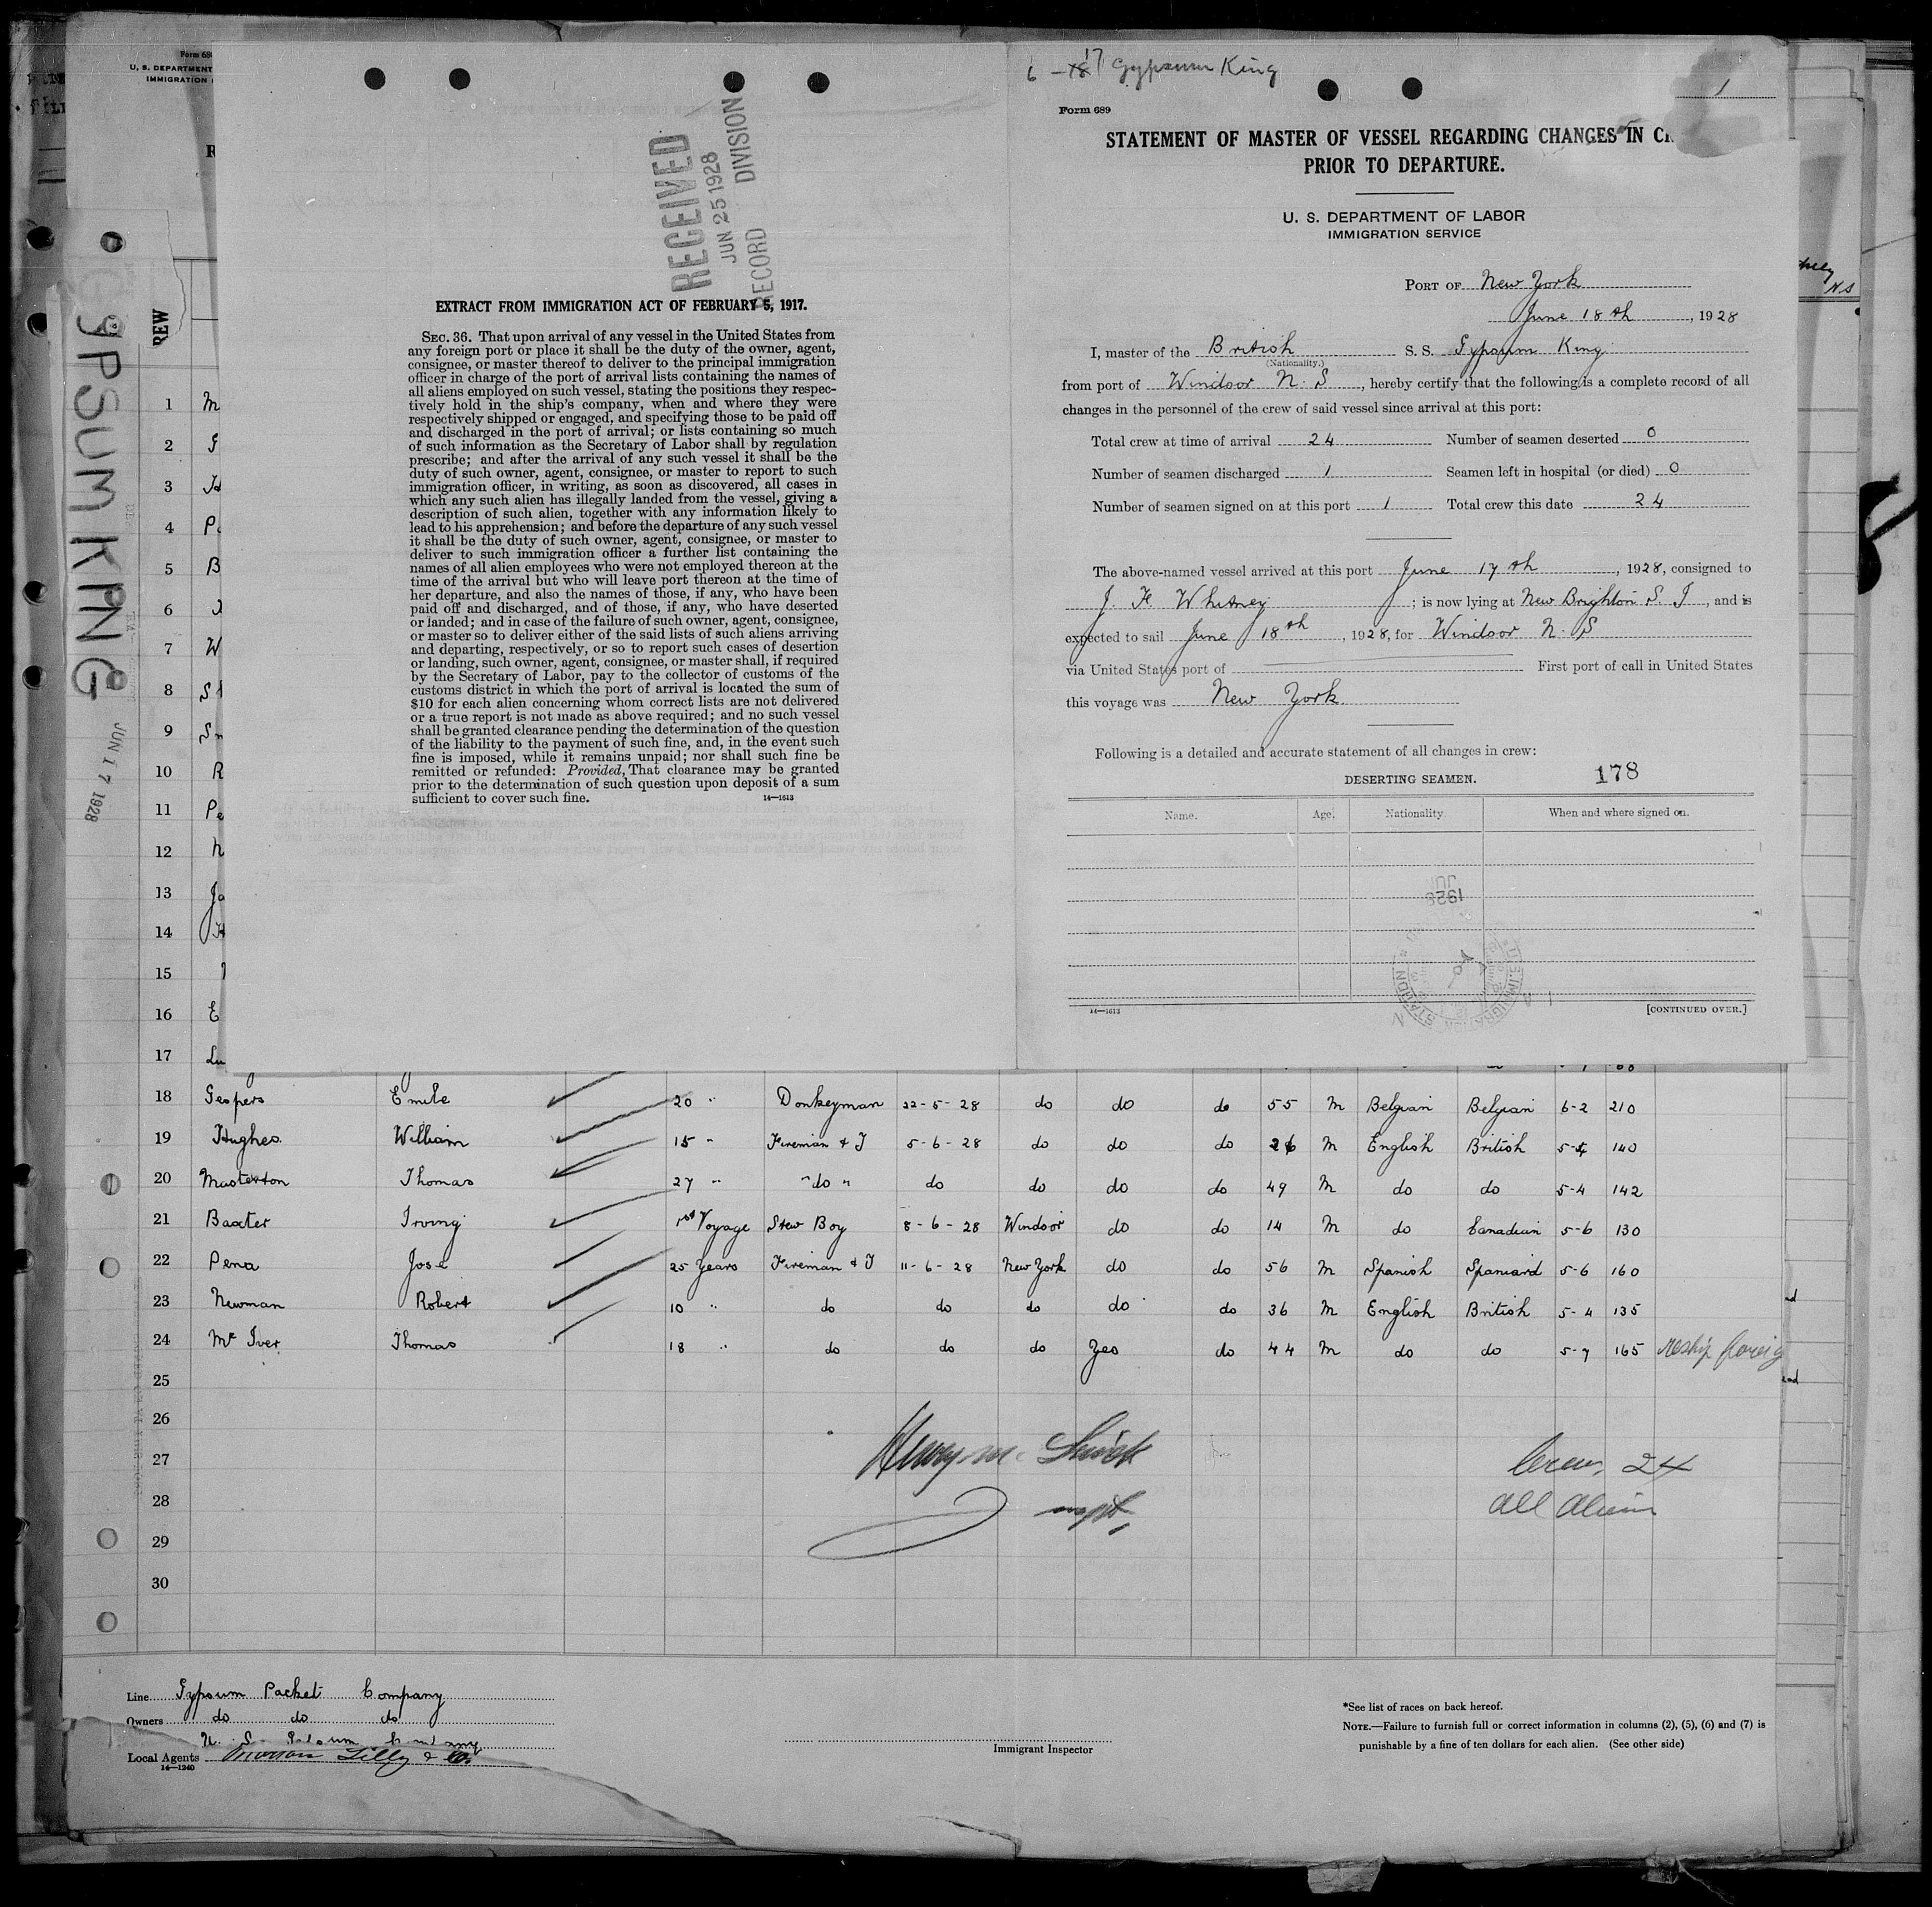 Form 68
U. S. DEPARTMENT
IMMIGRATION
RECEIVED
JUN 25 1928
RECORD DIVISION
EXTRACT FROM IMMIGRATION ACT OF FEBRUARY 5, 1917.
SEC. 36. That upon arrival of any vessel in the United States from
any foreign port or place it shall be the duty of the owner, agent,
consignee, or master thereof to deliver to the principal immigration
officer in charge of the port of arrival lists containing the names of
all aliens employed on such vessel, stating the positions they respec-
tively hold in the ship's company, when and where they were
respectively shipped or engaged, and specifying those to be paid off
and discharged in the port of arrival; or lists containing so much
of such information as the Secretary of Labor shall by regulation
prescribe; and after the arrival of any such vessel it shall be the
duty of such owner, agent, consignee, or master to report to such
immigration officer, in writing, as soon as discovered, all cases in
which any such alien has illegally landed from the vessel, giving a
description of such alien, together with any information likely to
lead to his apprehension; and before the departure of any such vessel
it shall be the duty of such owner, agent, consignee, or master to
deliver to such immigration officer a further list containing the
names of all alien employees who were not employed thereon at the
time of the arrival but who will leave port thereon at the time of
her departure, and also the names of those, if any, who have been
paid off and discharged, and of those, if any, who have deserted
or landed; and in case of the failure of such owner, agent, consignee,
or master so to deliver either of the said lists of such aliens arriving
and departing, respectively, or so to report such cases of desertion
or landing, such owner, agent, consignee, or master shall, if required
by the Secretary of Labor, pay to the collector of customs of the
customs district in which the port of arrival is located the sum of
$10 for each alien concerning whom correct lists are not delivered
or a true report is not made as above required; and no such vessel
shall be granted clearance pending the determination of the question
of the liability to the payment of such fine, and, in the event such
fine is imposed, while it remains unpaid; nor shall such fine be
remitted or refunded: Provided, That clearance may be granted
prior to the determination of such question upon deposit of a sum
sufficient to cover such fine.
14—1613
6 - 17 Gypsum King
1
Form 689
STATEMENT OF MASTER OF VESSEL REGARDING CHANGES IN C
PRIOR TO DEPARTURE.
U. S. DEPARTMENT OF LABOR
IMMIGRATION SERVICE
PORT OF New York
June 18th, 1928
I, master of the British S. S. Gypsum King
(Nationality.)
from port of Windsor N. S, hereby certify that the following is a complete record of all
changes in the personnel of the crew of said vessel since arrival at this port:
Total crew at time of arrival 24 Number of seamen deserted 0
Number of seamen discharged 1 Seamen left in hospital (or died) 0
Number of seamen signed on at this port 1 Total crew this date 24
The above-named vessel arrived at this port June 17th, 1928, consigned to
J. F. Whitney; is now lying at New Brighton S. I, and is
expected to sail June 18th, 1928, for Windsor N. S
via United States port of First port of call in United States
this voyage was New York.
Following is a detailed and accurate statement of all changes in crew:
DESERTING SEAMEN. 178
Name. Age. Nationality. When and where signed on.
1928
U.S. IMMIGRATION STATION
14—1613 [CONTINUED OVER.]
GYPSUM KING
JUN 17 1928
REW
1 M
2 G
3 H
4
5 B
6
7 W
8
9
10 R
11 Pe
12
13 Ja
14 H
15
16 E
17 Lu
18 Gespers Emile 20 " Donkeyman 22-5-28 do do do 55 M Belgian Belgian 6-2 210
19 Hughes William 15 " Fireman & T 5-6-28 do do do 26 M English British 5-4 140
20 Masterton Thomas 27 " " do " do do do do 49 M do do 5-4 142
21 Baxter Irving 1st Voyage Stew Boy 8-6-28 Windsor do do 14 M do Canadian 5-6 130
22 Pena Jose 25 Years Fireman & T 11-6-28 New York do do 56 M Spanish Spaniard 5-6 160
23 Newman Robert 10 " do do do do do 36 M English British 5-4 135
24 Mc Iver Thomas 18 " do do do Yes do 44 M do do 5-7 165 reship foreig
25
26
27
28
29
30
Crew 24
all aliens
Line Gypsum Packet Company
Owners do do do
Local Agents
14—1240
Immigrant Inspector
*See list of races on back hereof.
NOTE.—Failure to furnish full or correct information in columns (2), (5), (6) and (7) is
punishable by a fine of ten dollars for each alien. (See other side)